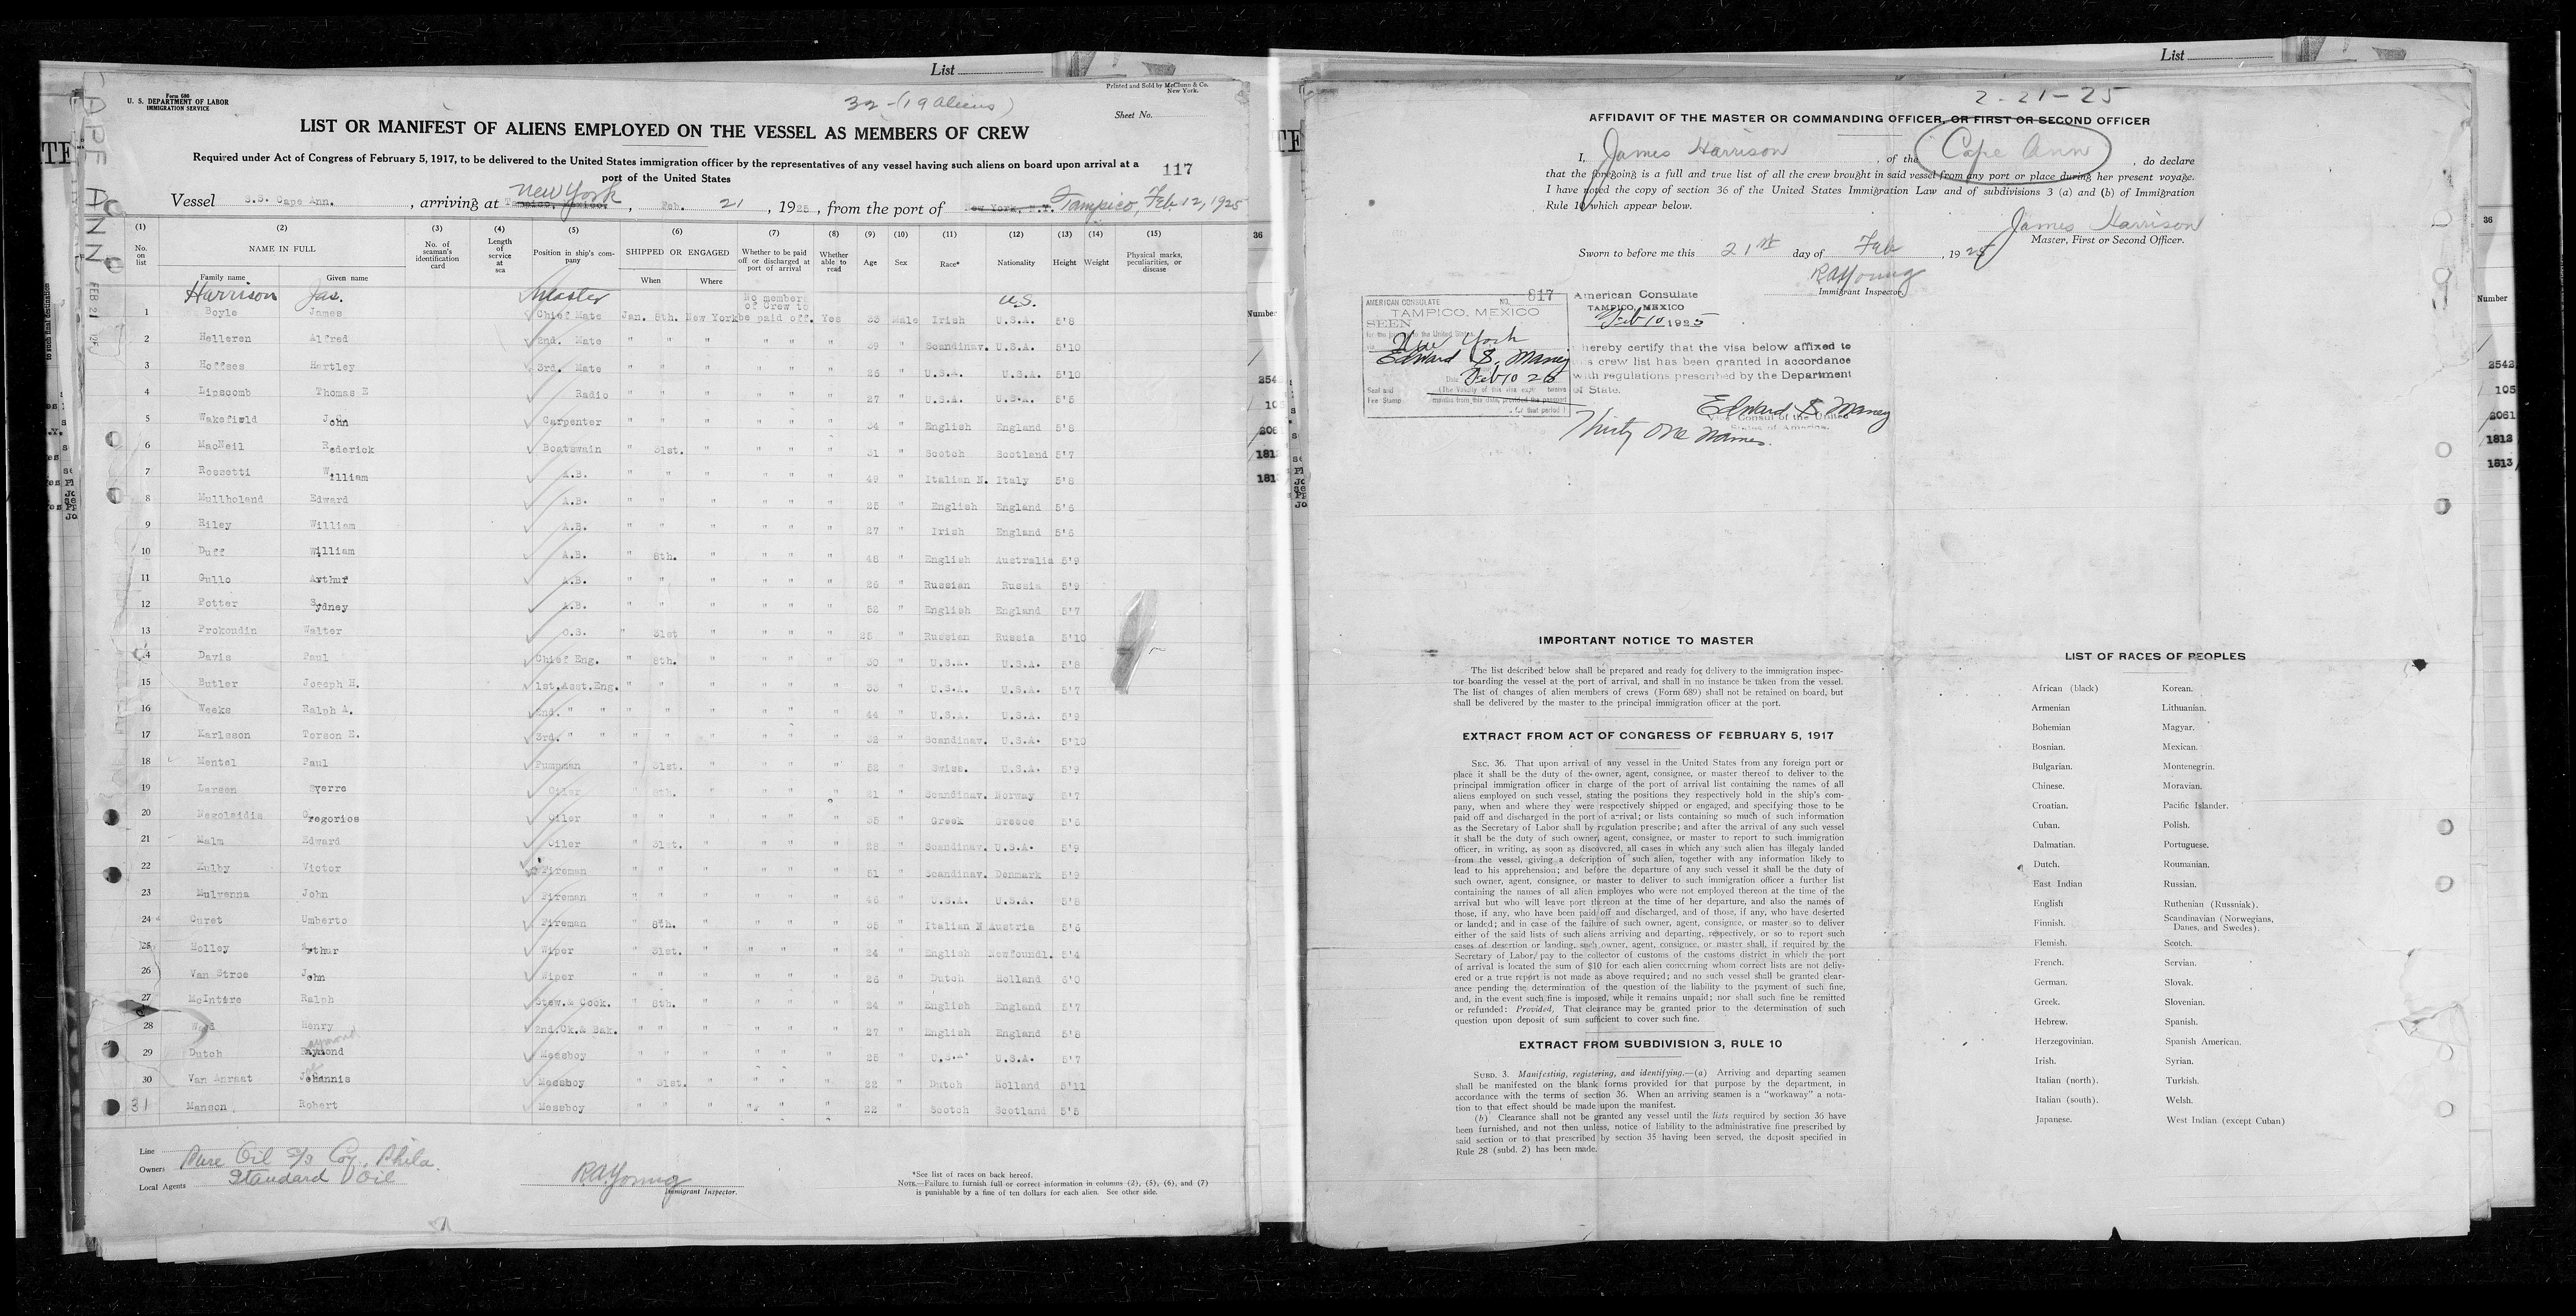 List
Form 680
U. S. DEPARTMENT OF LABOR
IMMIGRATION SERVICE
Printed and Sold by McClunn & Co.
New York.
32-(19 aliens)
Sheet No.
LIST OR MANIFEST OF ALIENS EMPLOYED ON THE VESSEL AS MEMBERS OF CREW
Required under Act of Congress of February 5, 1917, to be delivered to the United States immigration officer by the representatives of any vessel having such aliens on board upon arrival at a
port of the United States
117
CAPE ANN
FEB 21 1925
Vessel S.S. Cape Ann. , arriving at Tampico, Mexico. New York , Feb. 21 , 1925 , from the port of New York, N.Y. Tampico, Feb. 12, 1925
(1) (2) (3) (4) (5) (6) (7) (8) (9) (10) (11) (12) (13) (14) (15)
No. on list NAME IN FULL No. of seaman's identification card Length of service at sea Position in ship's company SHIPPED OR ENGAGED Whether to be paid off or discharged at port of arrival Whether able to read Age Sex Race* Nationality Height Weight Physical marks, peculiarities, or disease
Family name Given name When Where
Harrison Jas. Master No member of crew to U.S.
1 Boyle James Chief Mate Jan. 8th. New York be paid off. Yes 33 Male Irish U.S.A. 5'8
2 Helleren Alfred 2nd. Mate " " " " " " 39 " Scandinav. U.S.A. 5'10
3 Hoffses Hartley 3rd. Mate " " " " " " 26 " U.S.A. U.S.A. 5'10
4 Lipscomb Thomas E Radio " " " " " " 27 " U.S.A. U.S.A. 5'5
5 Wakefield John Carpenter " " " " " " 34 " English England 5'8
6 MacNeil Roderick Boatswain " 31st. " " " " 31 " Scotch Scotland 5'7
7 Rossetti William A.B. " " " " " " 49 " Italian N. Italy 5'8
8 Mullholand Edward A.B. " " " " " " 25 " English England 5'6
9 Riley William A.B. " " " " " " 27 " Irish England 5'6
10 Duff William A.B. " 8th. " " " " 48 " English Australia 5'9
11 Gullo Arthur A.B. " " " " " " 26 " Russian Russia 5'9
12 Potter Sydney A.B. " " " " " " 52 " English England 5'7
13 Prokoudin Walter O.S. " 31st " " " " 25 " Russian Russia 5'10
14 Davis Paul Chief Eng. " 8th. " " " " 30 " U.S.A. U.S.A. 5'8
15 Butler Joseph H. 1st.Asst.Eng. " " " " " " 33 " U.S.A. U.S.A. 5'7
16 Weeks Ralph A. 2nd. " " " " " " " " 44 " U.S.A. U.S.A. 5'9
17 Karlsson Torson E. 3rd. " " " " " " " " 32 " Scandinav. U.S.A. 5'10
18 Mentel Paul Pumpman " 31st. " " " " 52 " Swiss. U.S.A. 5'9
19 Larsen Sverre Oiler " 8th. " " " " 41 " Scandinav. Norway 5'7
20 Gregorios Oiler " " " " " " 35 " Greek Greece 5'6
21 Malm Edward Oiler " 31st. " " " " 28 " Scandinav. U.S.A. 5'9
22 Kulby Victor Fireman " " " " " " 51 " Scandinav. Denmark 5'9
23 Mulvenna John Fireman " " " " " " 46 " U.S.A. U.S.A. 5'8
24 Curet Umberto Fireman " 8th. " " " " 35 " Italian N Austria 5'6
25 Holley Arthur Wiper " 31st. " " " " 24 " English Newfoundl. 5'4
26 Van Stroe John Wiper " " " " " " 26 " Dutch Holland 6'0
27 McIntire Ralph Stew.& Cook. " 8th. " " " " 24 " English England 5'7
28 Henry 2nd.Ck.& Bak. " " " " " " 27 " English England 5'8
29 Dutch Raymond Messboy " " " " " " 25 " U.S.A. U.S.A. 5'7
30 Van Anraat Johannis Messboy " 31st. " " " " 22 " Dutch Holland 5'11
31 Manson Robert Messboy " " " " " " 22 " Scotch Scotland 5'5
Line
Owners Pure Oil S/S Coy, Phila.
Local Agents Standard Oil
R A Young
Immigrant Inspector.
*See list of races on back hereof.
NOTE.—Failure to furnish full or correct information in columns (2), (5), (6), and (7)
is punishable by a fine of ten dollars for each alien. See other side.
36
Number
List
2-21-25
AFFIDAVIT OF THE MASTER OR COMMANDING OFFICER, OR FIRST OR SECOND OFFICER
I, James Harrison , of the Cape Ann , do declare
that the foregoing is a full and true list of all the crew brought in said vessel from any port or place during her present voyage.
I have noted the copy of section 36 of the United States Immigration Law and of subdivisions 3 (a) and (b) of Immigration
Rule 10 which appear below.
James Harrison
Master, First or Second Officer.
Sworn to before me this 21st day of Feb , 1925
R A Young
Immigrant Inspector.
AMERICAN CONSULATE NO. 817
TAMPICO, MEXICO
SEEN
for the journey to the United States.
New York
Edward S. Maney
Date Feb 10 25
Seal and
Fee Stamp
(The validity of this visa expires twelve
months from this date, provided the passport
for that period)
American Consulate
TAMPICO, MEXICO
Feb 10 1925
hereby certify that the visa below affixed to
crew list has been granted in accordance
with regulations prescribed by the Department
of State.
Edward S. Maney
Vice Consul of the United
States of America.
Thirty one names.
IMPORTANT NOTICE TO MASTER
The list described below shall be prepared and ready for delivery to the immigration inspec-
tor boarding the vessel at the port of arrival, and shall in no instance be taken from the vessel.
The list of changes of alien members of crews (Form 689) shall not be retained on board, but
shall be delivered by the master to the principal immigration officer at the port.
EXTRACT FROM ACT OF CONGRESS OF FEBRUARY 5, 1917
SEC. 36. That upon arrival of any vessel in the United States from any foreign port or
place it shall be the duty of the owner, agent, consignee, or master thereof to deliver to the
principal immigration officer in charge of the port of arrival list containing the names of all
aliens employed on such vessel, stating the positions they respectively hold in the ship's com-
pany, when and where they were respectively shipped or engaged, and specifying those to be
paid off and discharged in the port of arrival; or lists containing so much of such information
as the Secretary of Labor shall by regulation prescribe; and after the arrival of any such vessel
it shall be the duty of such owner, agent, consignee, or master to report to such immigration
officer, in writing, as soon as discovered, all cases in which any such alien has illegally landed
from the vessel, giving a description of such alien, together with any information likely to
lead to his apprehension; and before the departure of any such vessel it shall be the duty of
such owner, agent, consignee, or master to deliver to such immigration officer a further list
containing the names of all alien employes who were not employed thereon at the time of the
arrival but who will leave port thereon at the time of her departure, and also the names of
those, if any, who have been paid off and discharged, and of those, if any, who have deserted
or landed; and in case of the failure of such owner, agent, consignee, or master so to deliver
either of the said lists of such aliens arriving and departing, respectively, or so to report such
cases of desertion or landing, such owner, agent, consignee, or master shall, if required by the
Secretary of Labor, pay to the collector of customs of the customs district in which the port
of arrival is located the sum of $10 for each alien concerning whom correct lists are not deliv-
ered or a true report is not made as above required; and no such vessel shall be granted clear-
ance pending the determination of the question of the liability to the payment of such fine,
and, in the event such fine is imposed, while it remains unpaid; nor shall such fine be remitted
or refunded: Provided, That clearance may be granted prior to the determination of such
question upon deposit of sum sufficient to cover such fine.
EXTRACT FROM SUBDIVISION 3, RULE 10
SUBD. 3. Manifesting, registering, and identifying.—(a) Arriving and departing seamen
shall be manifested on the blank forms provided for that purpose by the department, in
accordance with the terms of section 36. When an arriving seamen is a "workaway" a nota-
tion to that effect should be made upon the manifest.
(b) Clearance shall not be granted any vessel until the lists required by section 36 have
been furnished, and not then unless, notice of liability to the administrative fine prescribed by
said section or to that prescribed by section 35 having been served, the deposit specified in
Rule 28 (subd. 2) has been made.
LIST OF RACES OF PEOPLES
African (black) Korean.
Armenian Lithuanian.
Bohemian Magyar.
Bosnian. Mexican.
Bulgarian. Montenegrin.
Chinese. Moravian.
Croatian. Pacific Islander.
Cuban. Polish.
Dalmatian. Portuguese.
Dutch. Roumanian.
East Indian Russian.
English Ruthenian (Russniak).
Finnish. Scandinavian (Norwegians,
Danes, and Swedes).
Flemish. Scotch.
French. Servian.
German. Slovak.
Greek. Slovenian.
Hebrew. Spanish.
Herzegovinian. Spanish American.
Irish. Syrian.
Italian (north). Turkish.
Italian (south). Welsh.
Japanese. West Indian (except Cuban)
36
Number
2542
105
2061
1812
1813